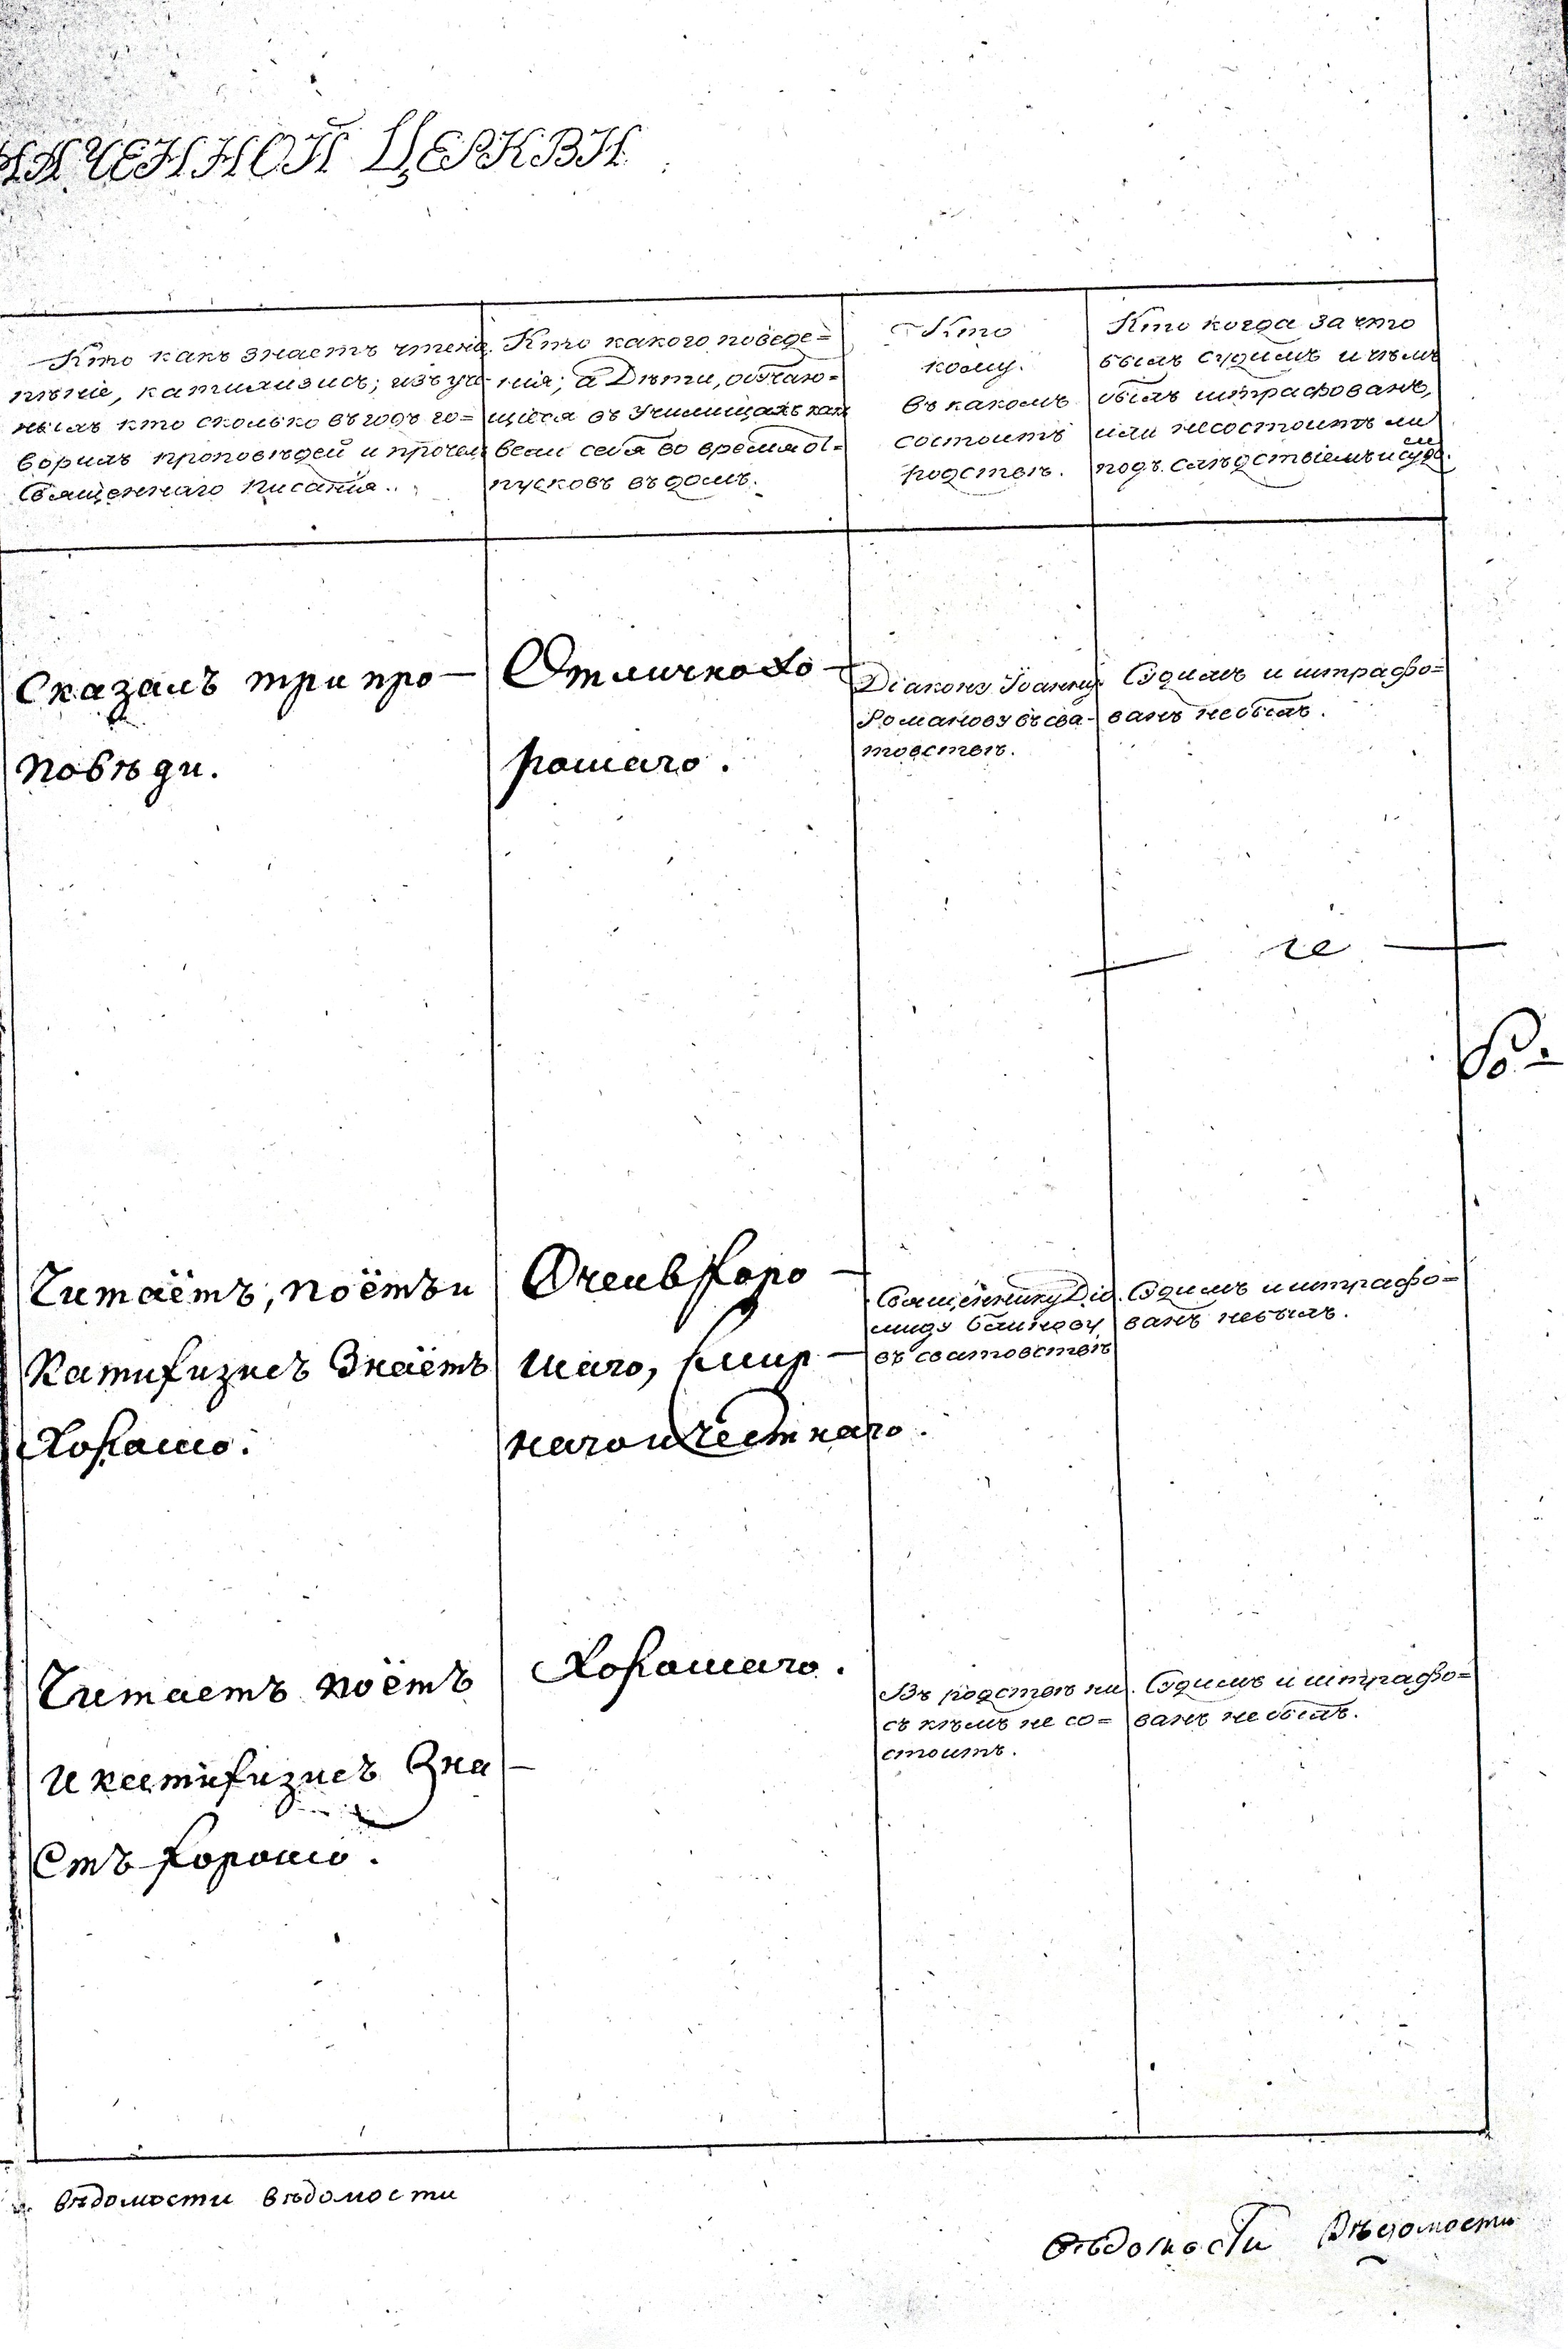 НАЧЕННОЙ ЦЕРКВИ
Кто какъ знаетъ чтеніе,
пѣніе, катихизисъ; изъ уче-
ныхъ кто сколько въ годъ го=
ворилъ проповѣдей и прочей
Священнаго писанія.
Кто какого поведе=
нія; а Дѣти, обучаю=
щіеся въ Училищахъ какъ
вели себя во время от=
пусковъ въ домъ.
Кто
кому.
въ какомъ
состоитъ
родствѣ.
Кто когда за что
былъ судимъ и чѣмъ
былъ штрафованъ,
или несостоитъ ли
подъ слѣдствіемъ и судомъ.
Сказалъ три про-
повѣди.
Отлично хо-
рошаго.
Діакону Іоанну
Романову въ сва-
товствѣ.
Судимъ и штрафо=
ванъ небылъ.
Читаётъ, поётъ и
Катихизисъ Знаётъ
Хорошо.
Очень хоро-
шаго, смир-
наго и честнаго.
Священнику Діо
миду
въ сватовствѣ
Судимъ и штрафо=
ванъ небылъ.
Читаетъ поётъ
и катихизисъ Зна-
етъ хорошо.
Хорошаго.
Въ родствѣ ни
съ кѣмъ не со=
стоитъ.
Судимъ и штрафо=
ванъ не былъ.
вѣдомости вѣдомости
вѣдомости Вѣдомости